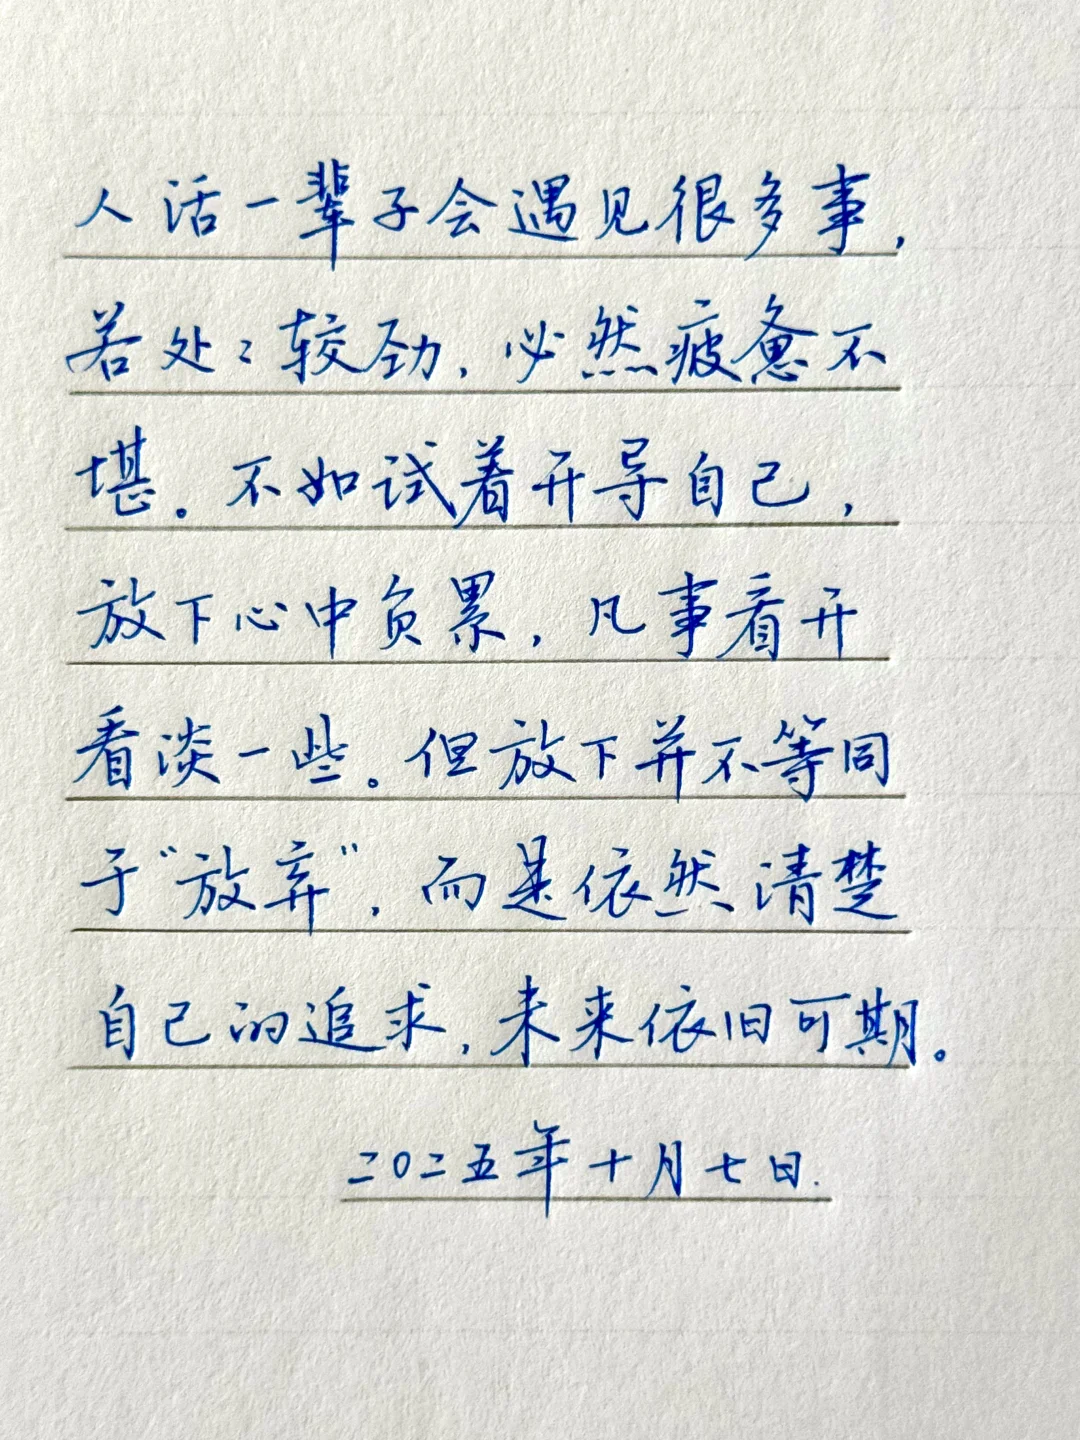 人活一辈子会遇见很多事,
若处〻较劲,必然疲惫不
堪。不如试着开导自己,
放下心中负累,凡事看开
看淡一些。但放下并不等同
于“放弃”,而是依然清楚
自己的追求,未来依旧可期。
二〇二五年十月七日.